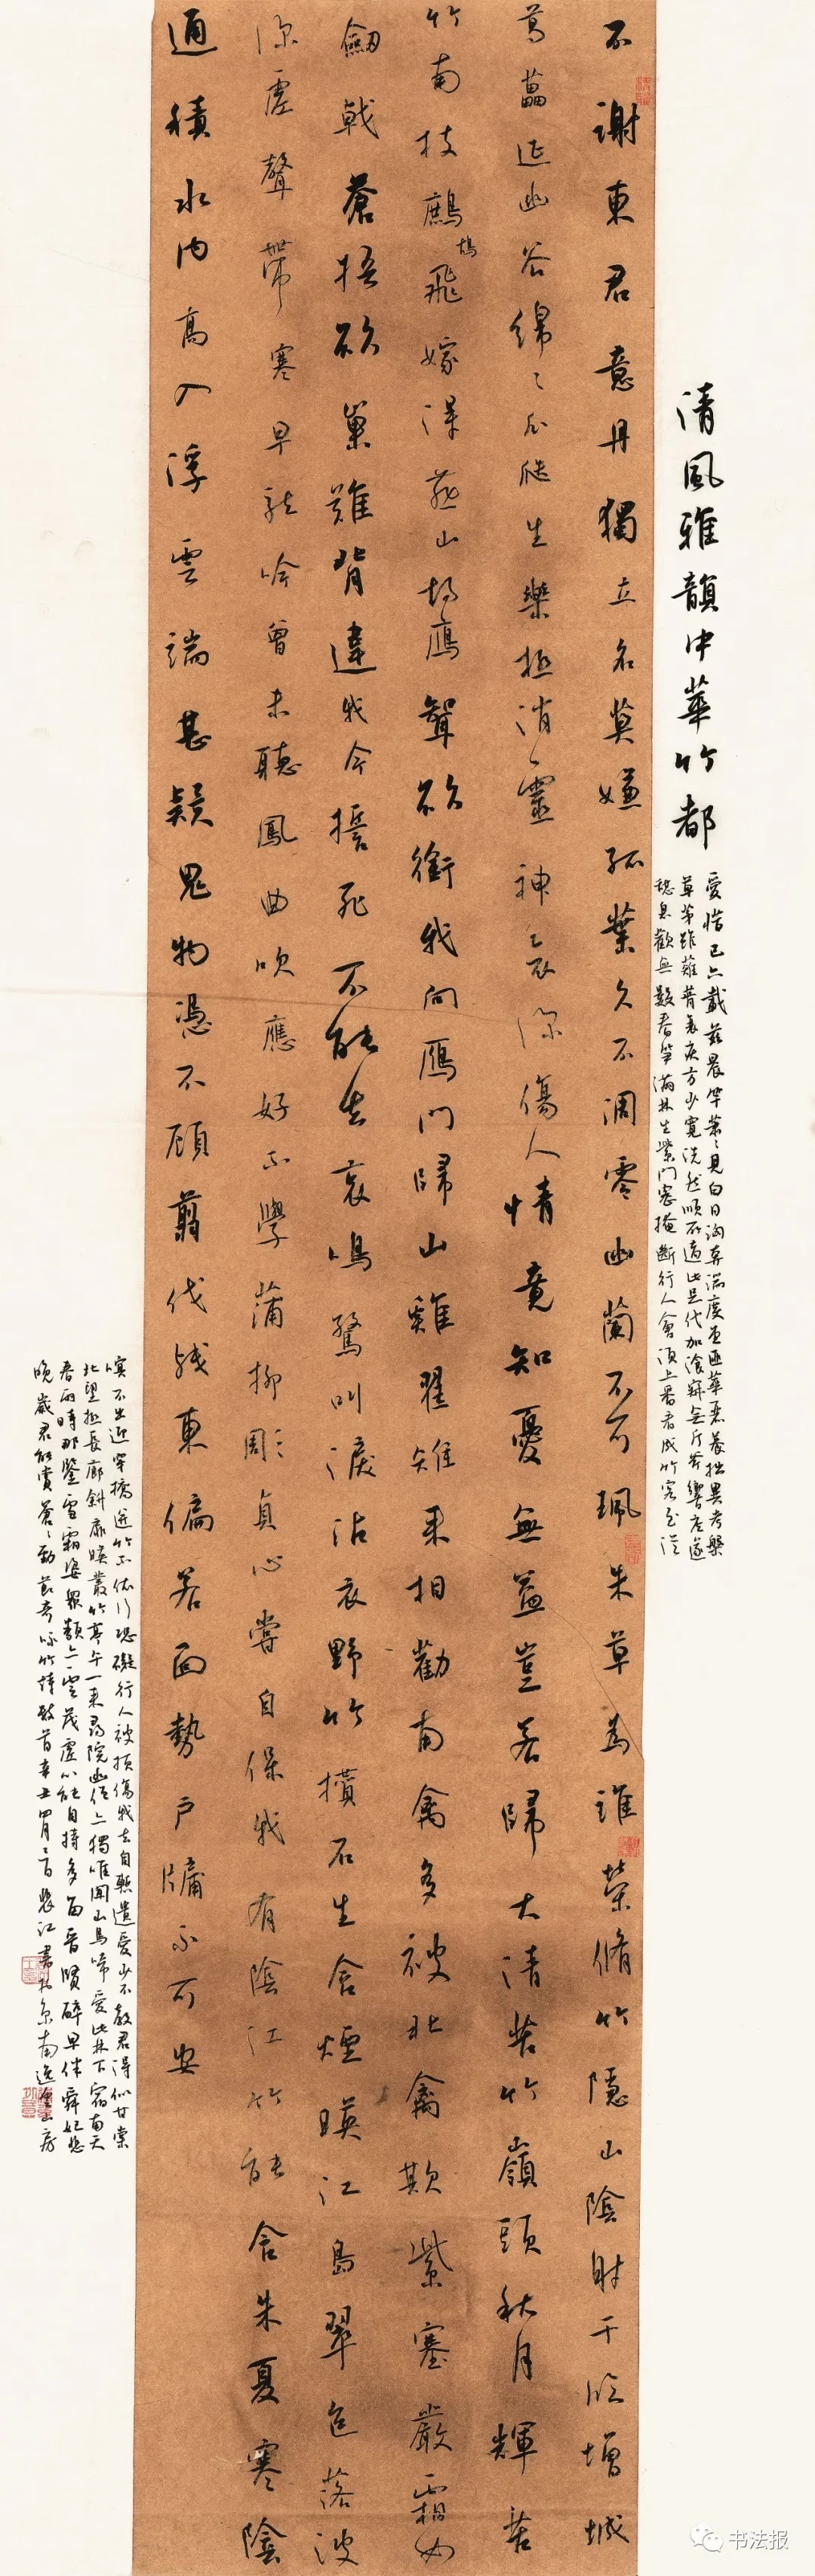 清風雅韻中華竹都
愛惜已六載茲晨竿葉見白日
草茅雖薙 方少寬洗然順所適此足代加飡 無行
歡無數春笋滿林生柴門密掩斷行人會須上番看成竹客至從
不謝東君意丹獨立名莫嫌孤葉久不凋零幽蘭不可珮朱草為誰榮脩竹隱山陰射干臨增城
葛藟延幽谷綿綿瓜瓞生樂極消靈神哀深傷人情竟知憂無益豈若歸太清苦竹嶺頭秋月輝苦
竹南枝鷓鴣飛嫁得燕山胡鴈聟欲銜我向鴈門歸山雞翟雉來相勸南禽多被北禽欺紫塞嚴霜如
劒戟蒼梧欲巢難背違我今誓死不能去哀鳴驚叫淚沾衣野竹攢石生含煙映江島翠色落波
深虛聲帶寒早龍吟曾未聽鳳曲吹應好不學蒲柳彫貞心嘗自保我有陰江竹能令朱夏寒陰
通積水內高入浮雲端甚疑鬼物憑不顧翦伐殘東偏若面勢戶牖永可安
嗔不出迎穿橋迸竹不依行恐礙行人被損傷我去自慙遺愛少不教君得似甘棠
北望極長廊斜扉映叢竹亭午一來尋院幽僧亦獨唯聞山鳥啼愛此林下宿南天
春雨時那鑒雪霜姿眾類亦雲茂虛心能自持多留晉賢醉早伴舜妃悲
晚歲君能賞蒼蒼勁節奇詠竹詩數首辛丑四月 裴江書於京南逸 山房
书法报